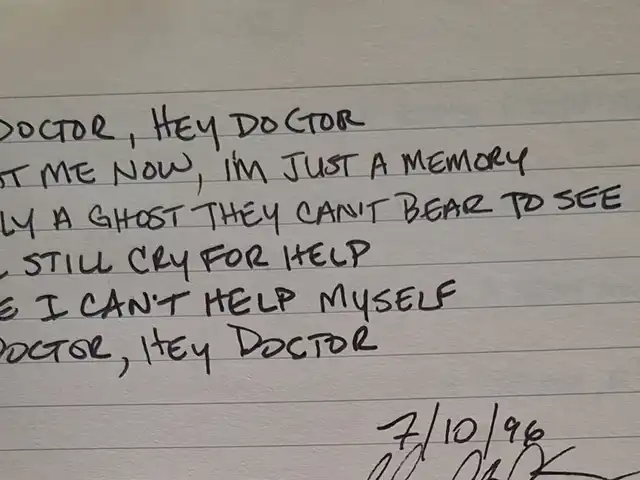 DOCTOR, HEY DOCTOR
ST ME NOW, I'M JUST A MEMORY
LY A GHOST THEY CAN'T BEAR TO SEE
STILL CRY FOR HELP
E I CAN'T HELP MYSELF
DOCTOR, HEY DOCTOR
7/10/96